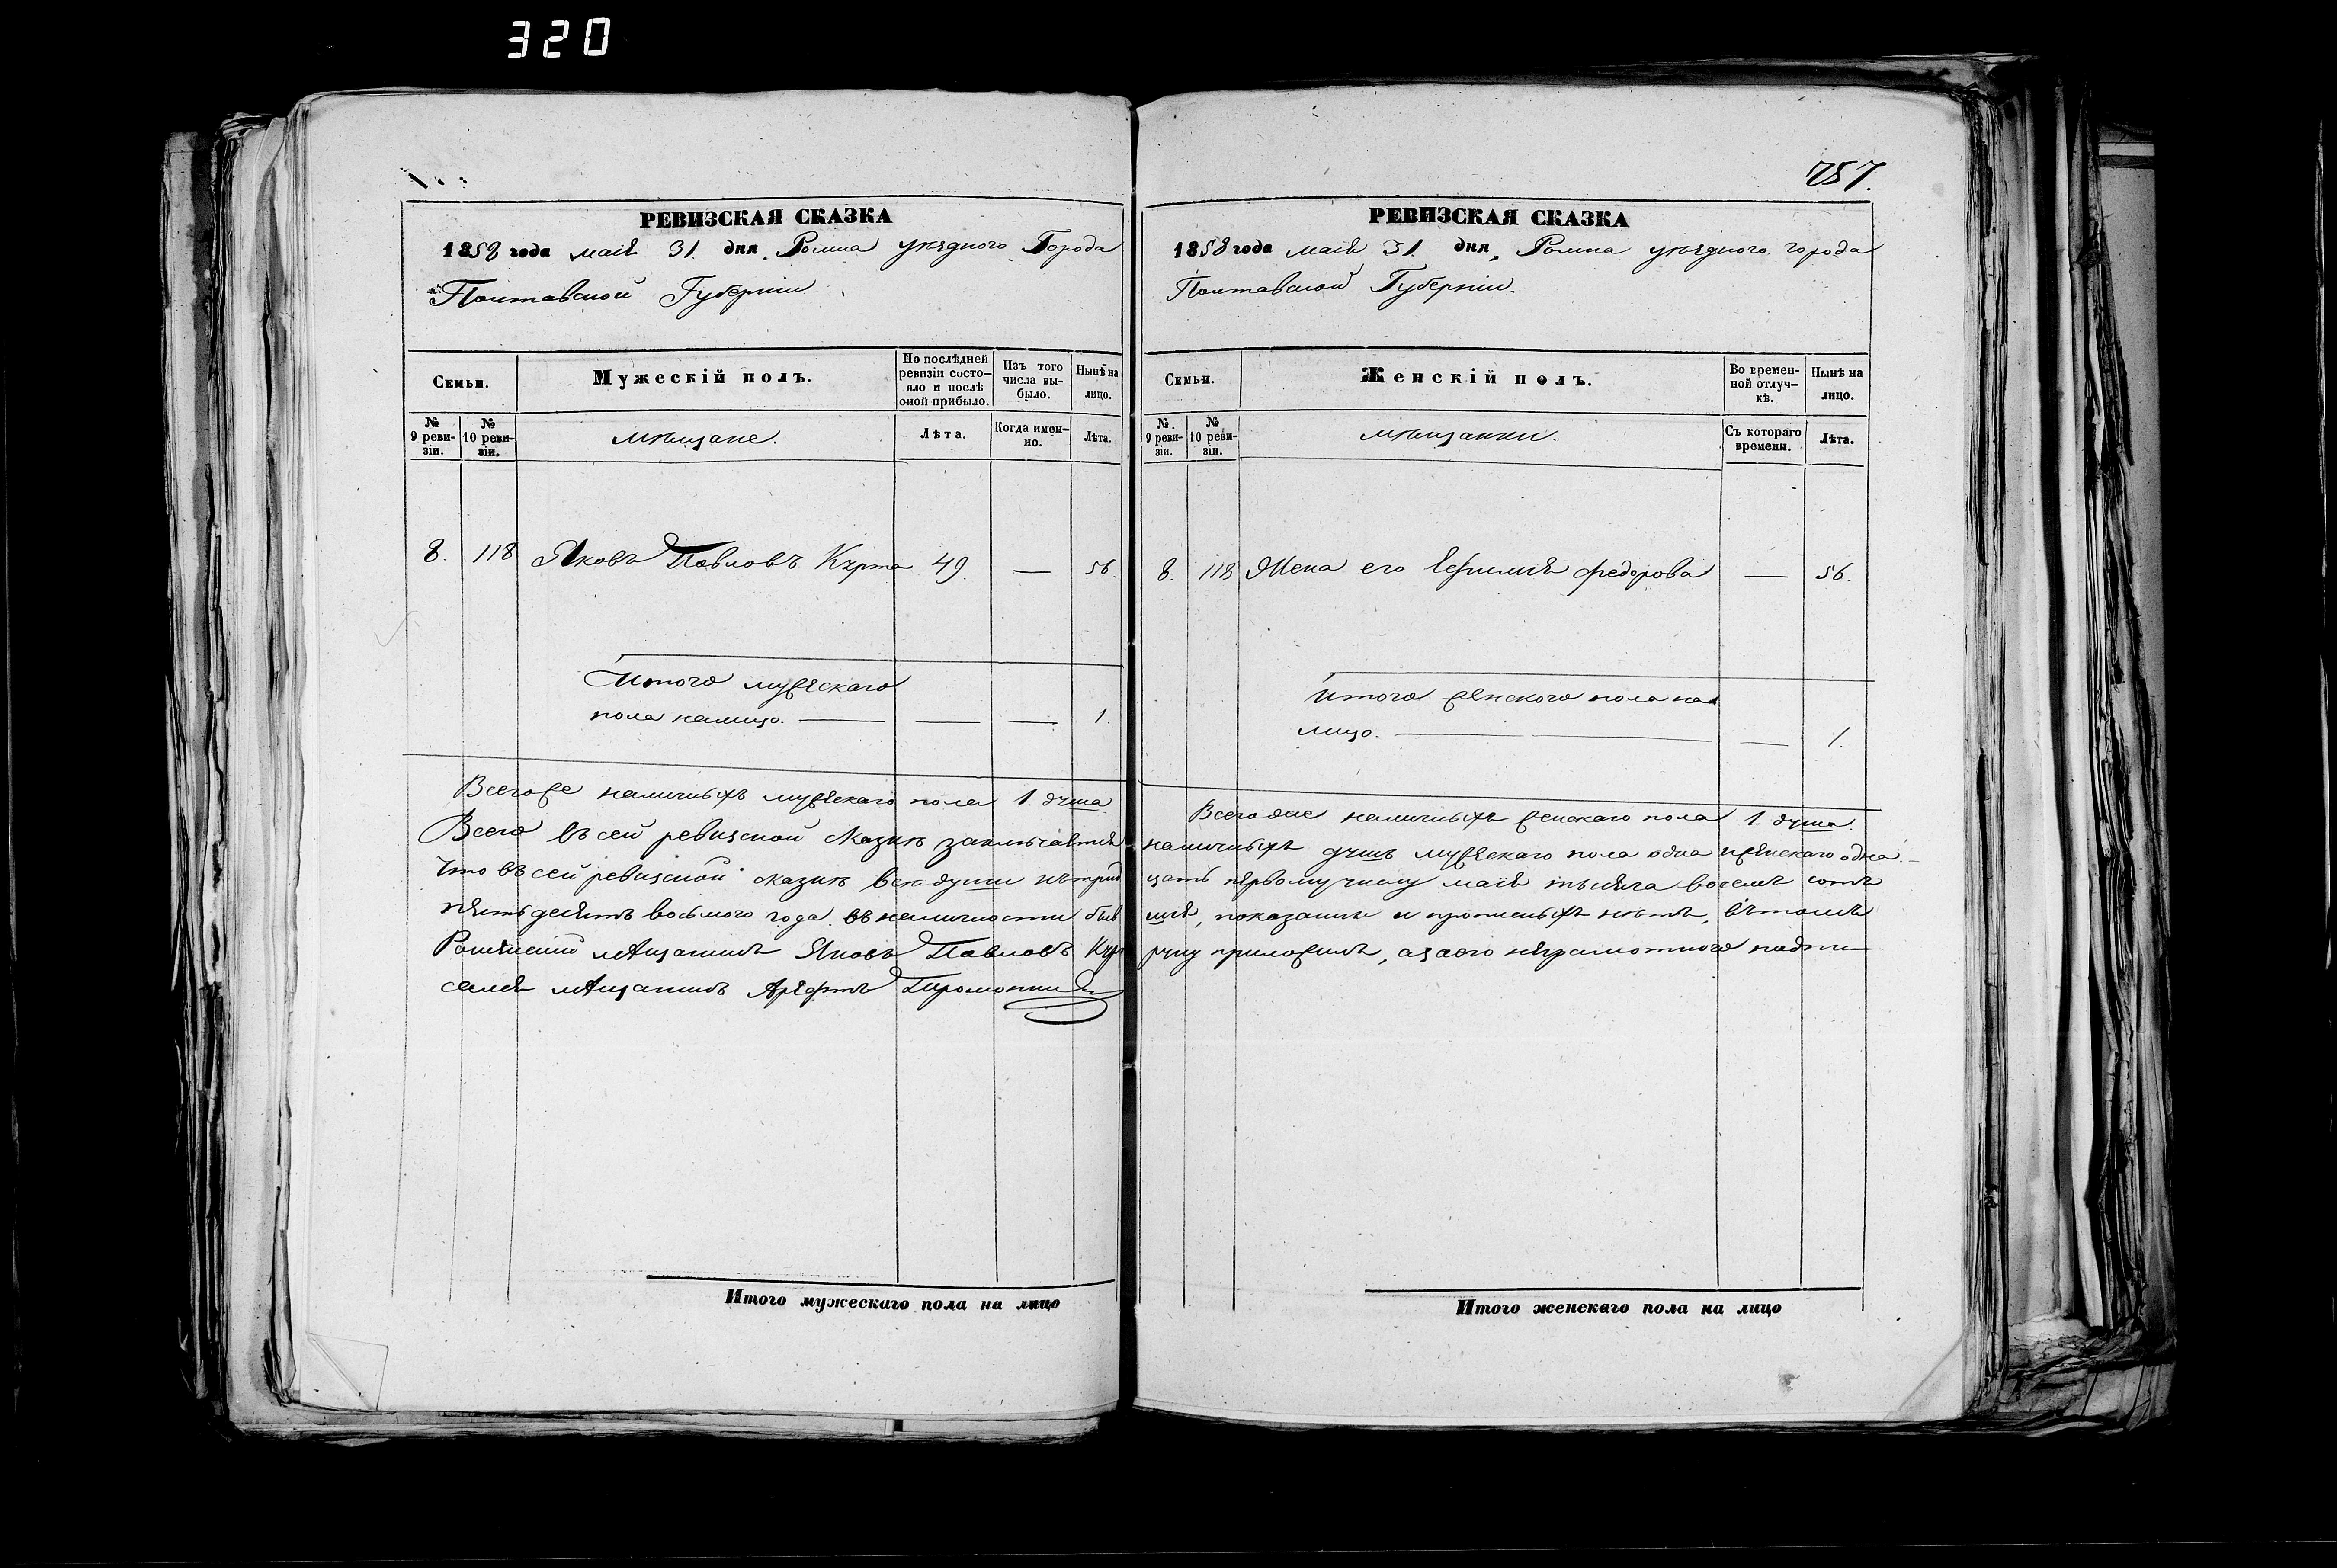 320
РЕВИЗСКАЯ СКАЗКА
1858 года маія 31 дня, Ромна уѣзднаго Города
Полтавской Губерніи
Семьи.
Мужескій полъ.
По послѣдней ревизіи состояло и послѣ оной прибыло.
Изъ того числа выбыло.
Нынѣ на лицо.
№ 9 ревизіи.
№ 10 ревизіи.
мѣщане.
Лѣта.
Когда именно.
Лѣта.
8. 118 Яковъ Павловъ Курта 49. — 56.
Итого мужескаго
пола налицо. — — — 1.
Всегоже наличныхъ мужескаго пола 1. душа
Всего въ сей ревизской сказкѣ заключается
Что въ сей ревизской сказкѣ всѣ души къ трид
пятьдесятъ восьмого года въ наличности быв
Роменскій мѣщанинъ Яковъ Павловъ Кур
сался мѣщанинъ
Итого мужескаго пола на лицо
757.
РЕВИЗСКАЯ СКАЗКА
1858 года маія 31 дня, Ромна уѣзднаго города
Полтавской Губерніи.
Семьи.
Женскій полъ.
Во временной отлучкѣ.
Нынѣ на лицо.
№ 9 ревизіи.
№ 10 ревизіи.
мѣщанки.
Съ котораго времени.
Лѣта.
8. 118 Жена его Ефимія Федорова — 56.
Итого женского пола на
лицо. — — 1.
Всегоже наличныхъ женскаго пола 1. душа.
наличныхъ душъ мужескаго пола одна и женскаго одна.
цать первому числу маія тысяча восемъ сотъ
шія, показаны и прописныхъ нѣтъ, въ томъ
руку приложилъ, а за его неграмотного подпи—
Итого женскаго пола на лицо